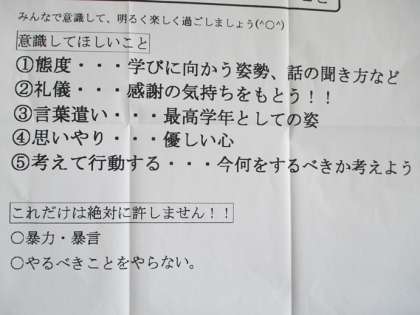 みんなで意識して、明るく楽しく過ごしましょう(^○^)
意識してほしいこと
①態度・・・学びに向かう姿勢、話の聞き方など
②礼儀・・・感謝の気持ちをもとう!!
③言葉遣い・・・最高学年としての姿
④思いやり・・・優しい心
⑤考えて行動する・・・今何をするべきか考えよう
これだけは絶対に許しません!!
○暴力・暴言
○やるべきことをやらない。